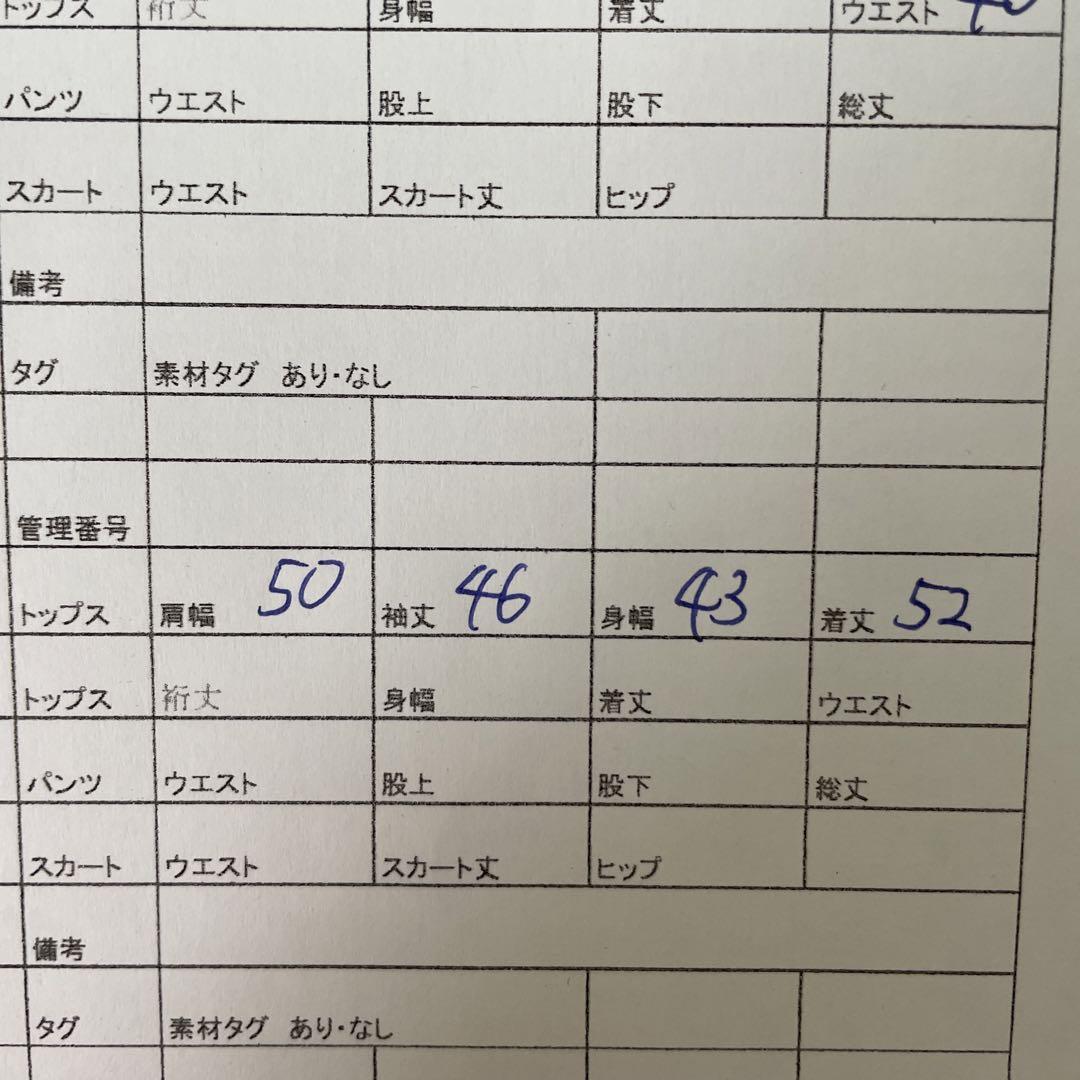 トップス 裄丈 身幅 着丈 ウエスト
パンツ ウエスト 股上 股下 総丈
スカート ウエスト スカート丈 ヒップ
備考
タグ 素材タグ あり・なし
管理番号
トップス 肩幅 50 袖丈 46 身幅 43 着丈 52
トップス 裄丈 身幅 着丈 ウエスト
パンツ ウエスト 股上 股下 総丈
スカート ウエスト スカート丈 ヒップ
備考
タグ 素材タグ あり・なし